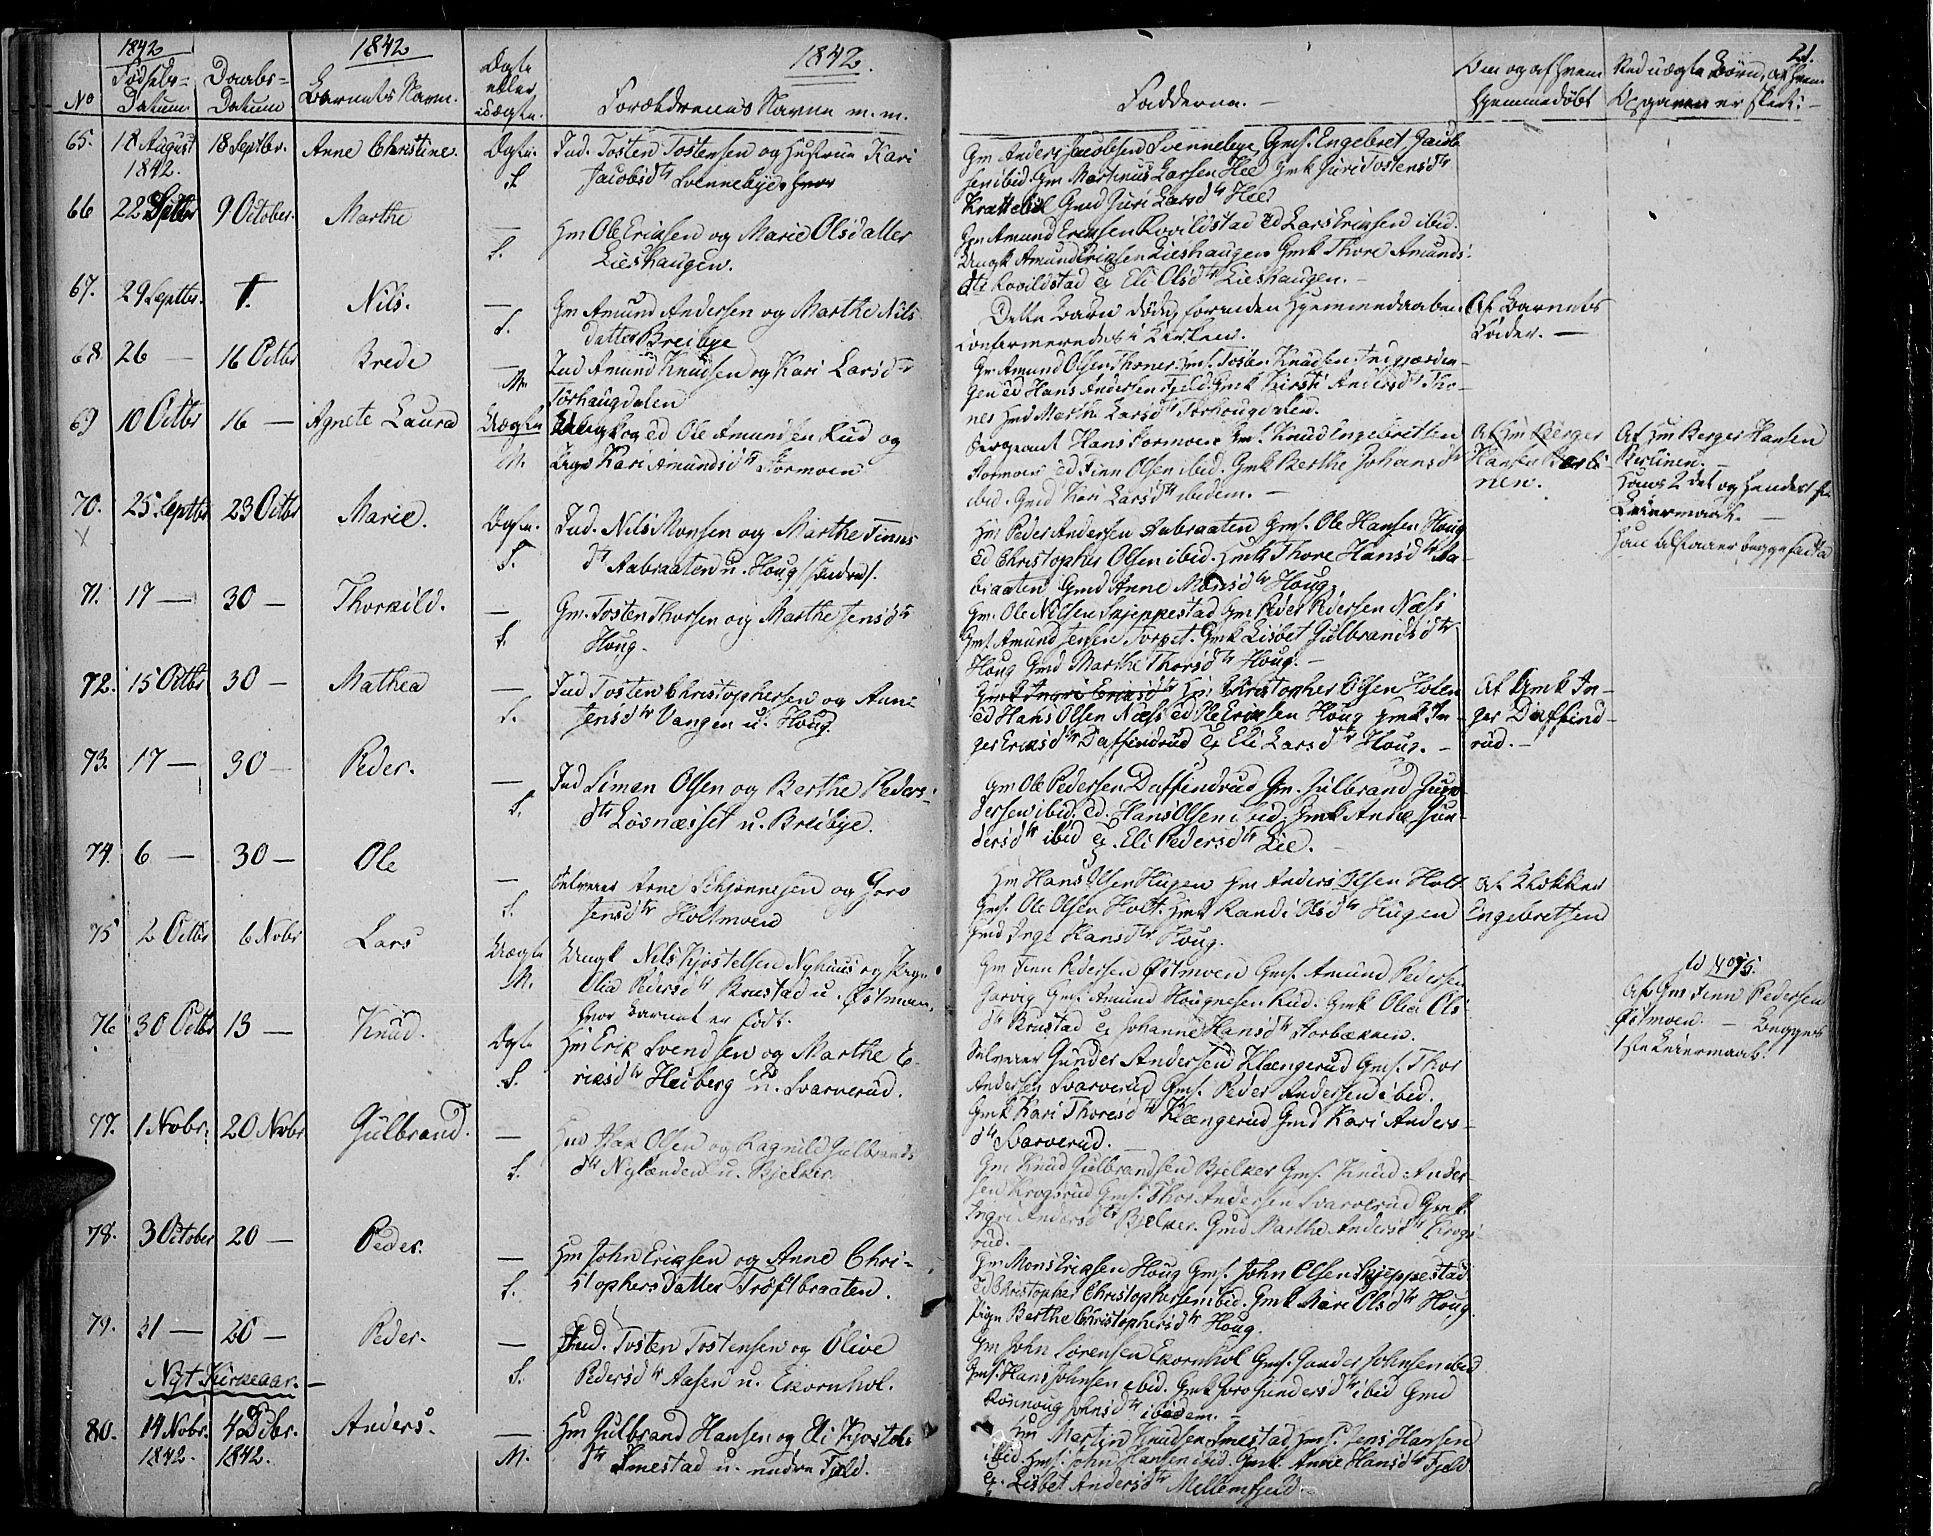 1842
1842
1842.
21.
No
Fødsels-
Datum
Daabs-
Datum
Barnets Navn.
Ægte
eller
uægte.
Forældrenes Navne m. m.
Fadderne. -
Om og af hvem
hjemmedøbt
Ved uægte Børn, af hvem
Opgaven er skeet. -
65. 18 August 18 Septbr. Anne Christine. Ægte. Ind. Tosten Tostensen og Hustrue Kari
1842. S. Jacobsdtr Svennebye
Gm Anders Jacobsen Svennebye Gms. Engebret Jacob-
sen ibid. Gm Martinus Larsen Hee Gmk Juri Tostensdtr
Krattebøl Gmd Juri Larsdtr Hee
66 22 Septbr 9 October. Marthe — Hm Ole Eriksen og Marie Olsdatter
S. Lieshaugen.
Gm Amund Eriksen Kovildstad ed Lars Eriksen ibid.
Ungk Amund Eriksen Lieshaugen Gmk Thore Amunds-
dtr Kovildstad og Eli Olsdtr Lieshaugen. —
67. 29 Septbr. †. Nils. — Gm Amund Andersen og Marthe Nils
S. datter Breibye
Dette Barn døde, forinden Hjemmedaaben
confirmeredes i Kirken.
Af Barnets
Fader. —
68 26 — 16 Octbr Brede — Ind Amund Knudsen og Kari Larsdtr
M. Torhaugdalen
Gm Amund Olsen Thorner Gms. Tosten Knudsen Indgjærdin-
gen ed Hans Andersen Fjeld. Gmk Kirsti Andersdtr Tho-
nes Gmd Marthe Larsdtr Torhougdalen.
69 10 Octbr 16 — Agnete Laura Uægte Ungk og ed Ole Amundsen Rud og
M. Pige Kari Amundsdtr Stormoen
Sergeant Hans Stormoen Gms. Knud Engebretsen
Stormoen ed Finn Olsen ibid. Gmk Berthe Johansdtr
ibid. Gmd Kari Larsdtr ibidem. —
Af Hm Berger
Hansen Berli-
nen.
Af Hm Berger Hansen
Berlinen.
Hans 2det og hendes 1ste
Leiermaal. —
70. 25 Septbr 23 Octbr Marie. Ægte. Ind. Nils Monsen og Marthe Finns
S. dtr Aabraaten u. Houg søndre.
Hm Peder Andersen Aabraaten Gms. Ole Hansen Houg
ed Christopher Olsen ibid. Gmk Thore Hansdtr Aa-
braaten Gmd Anne Monsdtr Houg.
71. 17 — 30 — Thorkild. — Gm. Tosten Thorsen og Marthe Jensdtr
S. Houg.
Gm. Ole Nilsen Skjeppestad Gm Peder Pedersen Næss
Gms. Amund Jensen Torpet. Gmk Lisbet Gulbrandsdtr
Houg Gmd Marthe Thorsdtr Houg. —
72. 15 Octbr 30 — Mathea — Ind Tosten Christophersen og Anne
S. Jensdtr Vangen u. Houg.
Gmk Ingri Eriksdtr Hm Christopher Olsen Holen
ed Hans Olsen Næss ed Ole Eriksen Houg Gmk In-
ger Eriksdtr Daffindrud og Eli Larsdtr Houg. —
Af Gmk In-
ger Daffind-
rud. —
73. 17 — 30 — Peder. — Ind Simen Olsen og Berthe Peders-
S. dtr Løsnæsset u. Breibye.
Gm Ole Pedersen Daffindrud Gm. Gulbrand Gun-
dersen ibid. ed. Hans Olsen ibid. Gmk Anne Gun-
dersdtr ibid og Eli Pedersdtr Lie. —
74. 6 — 30 — Ole — Selveier Arne Schjønnesen og Goro
S. Jensdtr Holtmoen
Hm Hans Olsen Hugen Hm Anders Olsen Holt
Gms. Ole Olsen Holt. Gmk Randi Olsdtr Hugen
Gmd Inge Hansdtr Houg.
Af Klokker
Engebretsen
75 2 Octbr 6 Nobr Lars Uægte Ungk Nils Kjostelsen Nyhuus og Pige
M. Olia Pedersdtr Brustad u. Østmoen,
hvor Barnet er født.
Gm Finn Pedersen Østmoen Gms. Amund Pedersen
Garvig Gms. Amund Hougnesen Rud. Gmk Olia Ols
dtr Brustad og Johanne Hansdtr Storbækken.
Af Gm Finn Pedersen
Østmoen. — Begges
1ste Leiermaal.
76 30 Octbr 13 — Knud. Ægte Hm Erik Svendsen og Marthe E-
S. riksdtr Heiberg u. Svarverud.
Selveier Gunder Andersen Klængerud Gms. Thor
Andersen Svarverud Gms. Peder Andersen ibid.
Gmk Kari Thoresdtr Klængerud Gmd Kari Anders-
dtr Svarverud.
77. 1 Nobr. 20 Nobr Gulbrand. — Hm Isak Olsen og Ragnild Gulbrands
S. dtr Nylænden u. Bjelker.
Gm Knud Gulbrandsen Bjelker Gms. Knud Ander-
sen Krogsrud Gms. Thor Andersen Svarverud Gmk
Ingri Andersdtr Bjelker. Gmd Marthe Andersdtr Krogs-
rud.
78. 3 October 20 — Peder. — Hm John Eriksen og Anne Chri-
S. stophersdatter Trøftbraaten.
Gm Mons Eriksen Houg Gms. John Olsen Skjeppestad
ed Christopher Christophersen ibid. Gmk Kari Olsdtr Houg
Pige Berthe Christophersdtr Houg.
79. 31 — 20 — Peder. — Ind. Tosten Tostensen og Olive
S. Pedersdtr Aasen u. Ekornhol.
Gm John Sørensen Ekornhol Gms. Gunder Johnsen ibid
Gms. Hans Johnsen ibid. Gmk Goro Gundersdtr ibid Gmd
Rønnoug Johnsdtr ibidem. —
Nyt Kirkeaar. —
80. 14 Nobr. 4 Dcbr. Anders. — Hm Gulbrand Hansen og Eli Kjostels
1842. 1842. M. dtr Smestad u. nedre Fjeld.
Hm Martin Knudsen Smestad Gms. Jens Hansen
ibid. Gms. John Hansen ibid. Gmk Anne Hansdtr Fjeld
og Lisbet Andersdtr Mellemfjeld.